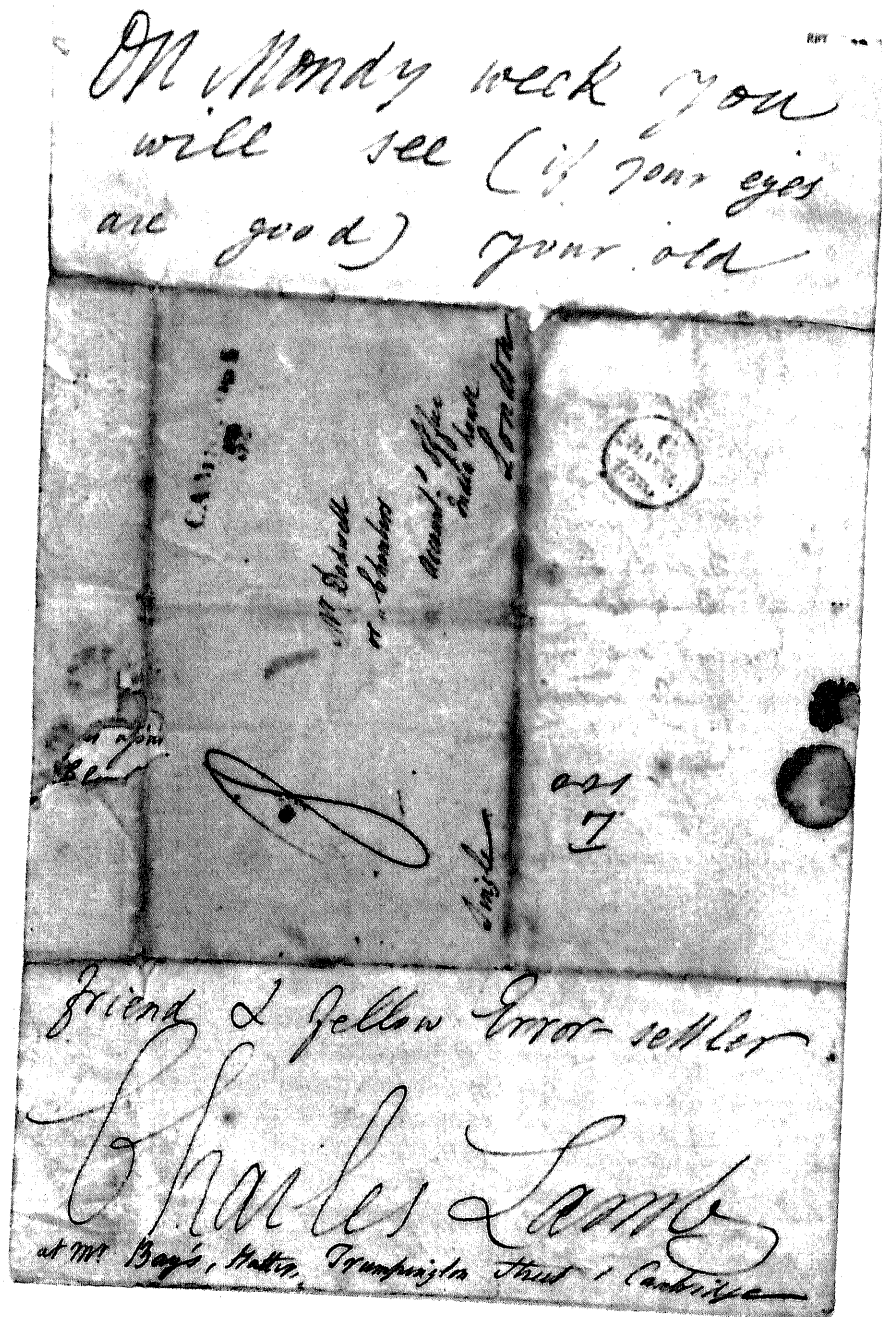 On Mondy week you
will see (if your eyes
are good) your old
Mr Dodwell
or Chambers
Accountts Office
India House
London
Single
7
friend & fellow Error-settler
Charles Lamb
at Mr Bays, Hatter, Trumpington Street, Cambridge